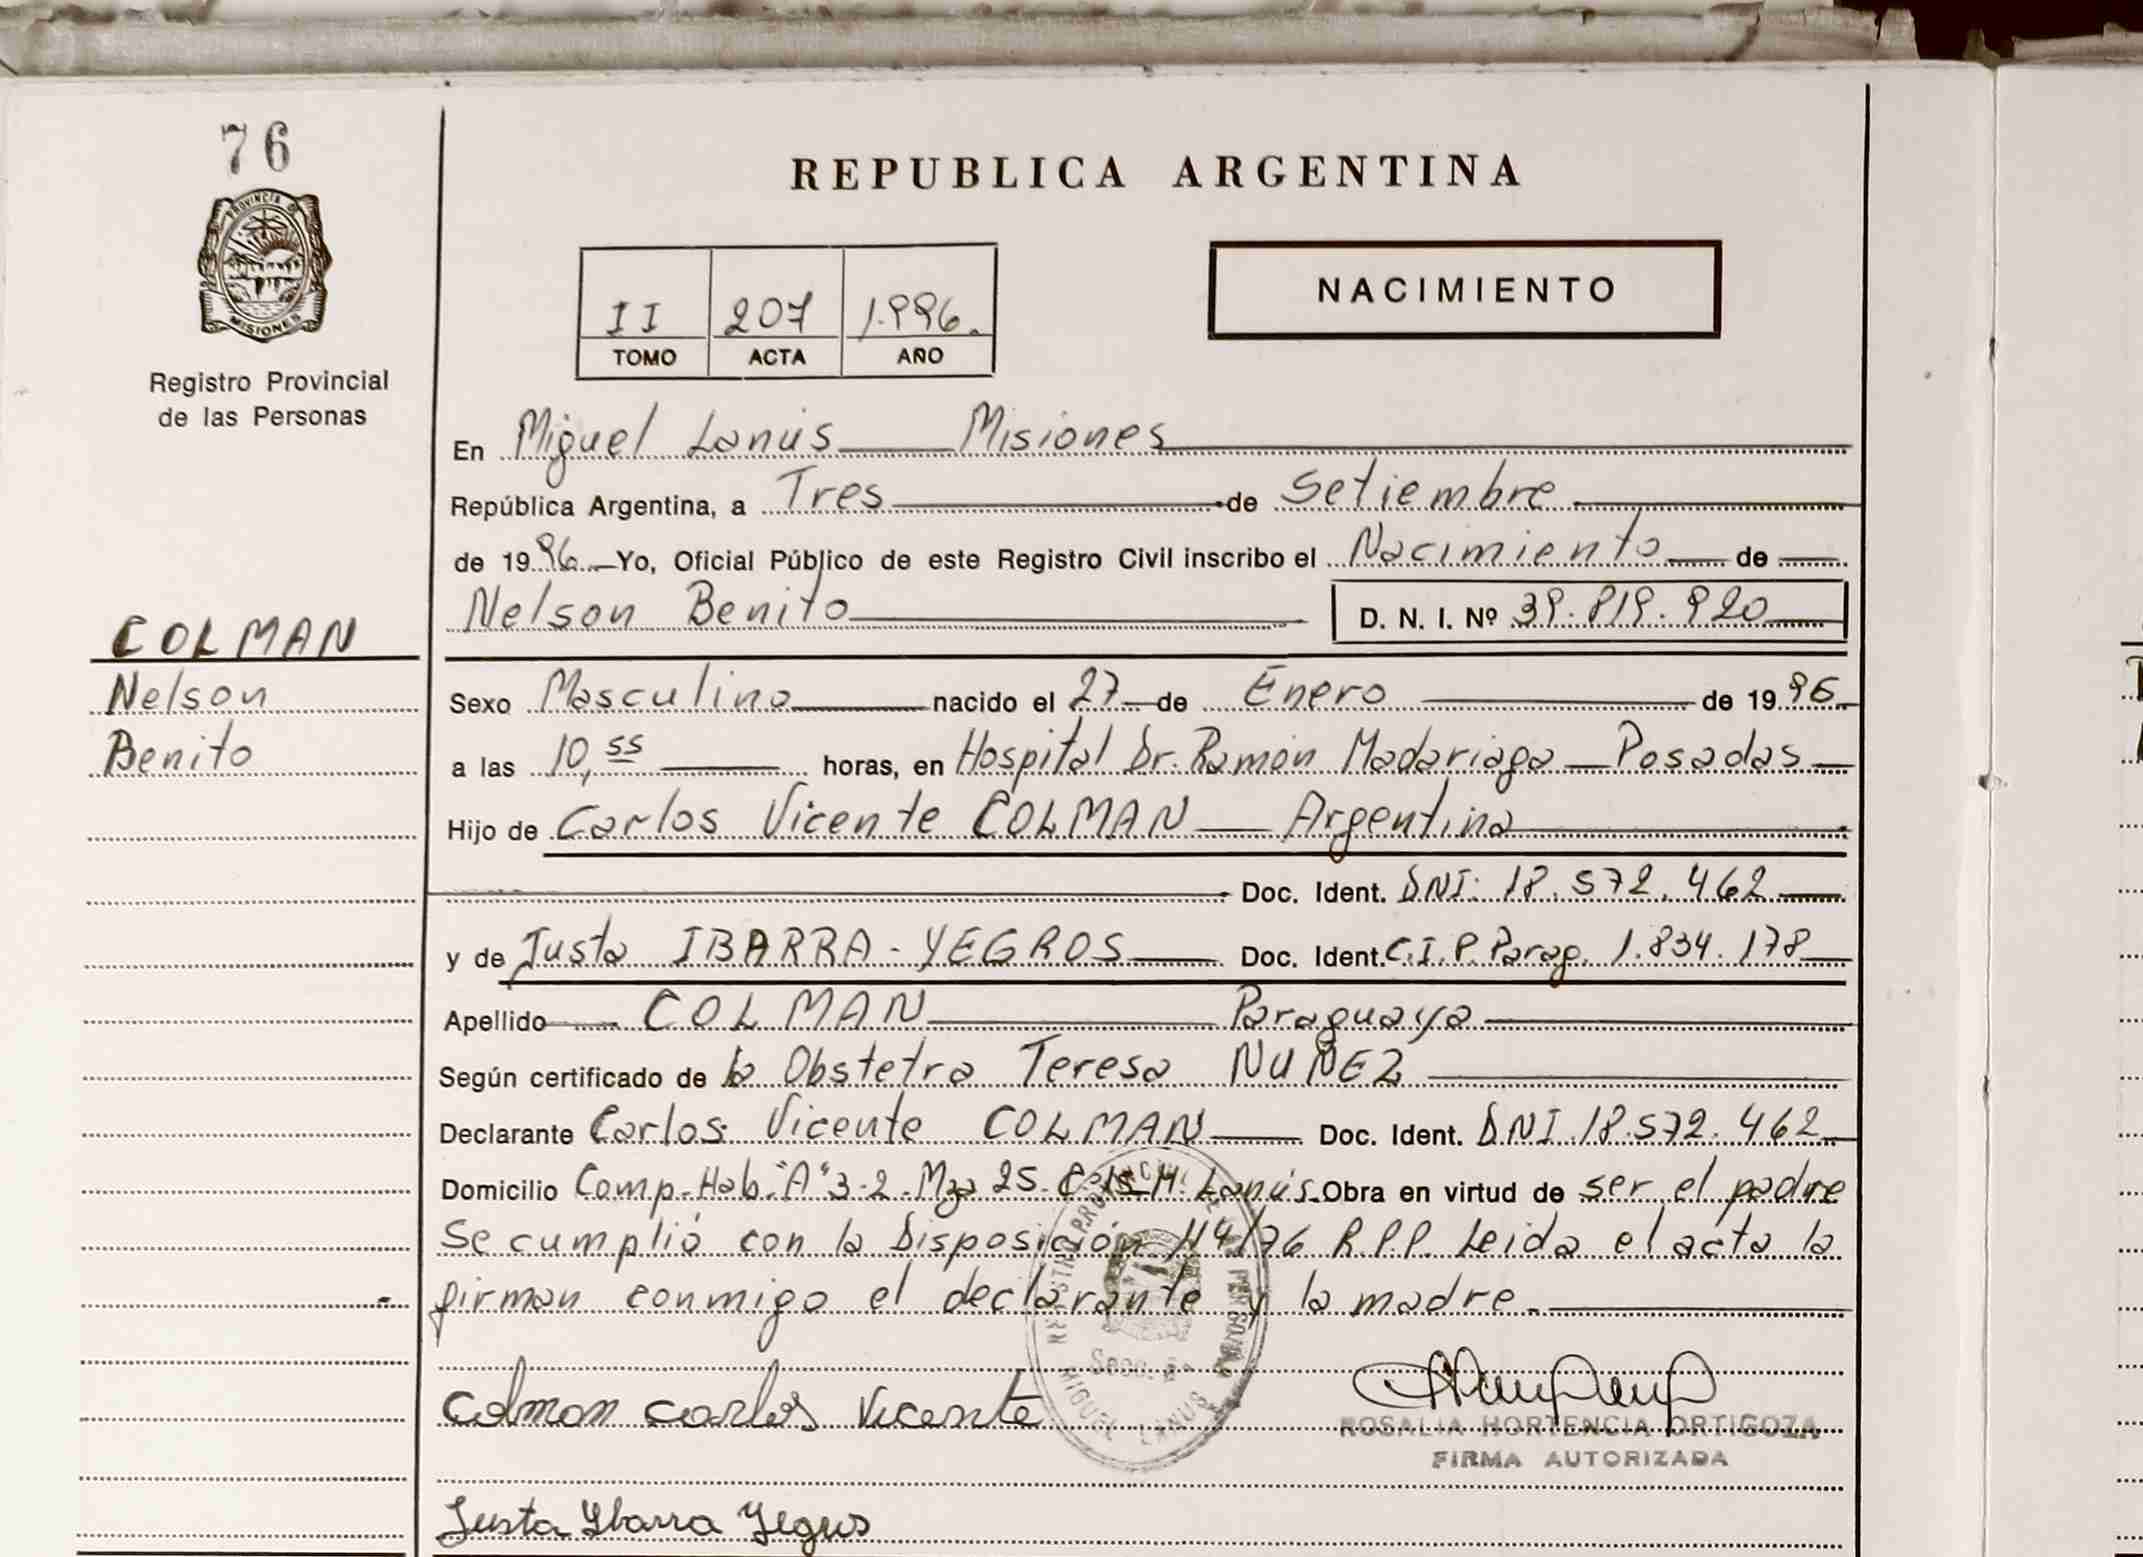 76
PROVINCIA DE
MISIONES
Registro Provincial
de las Personas
COLMAN
Nelson
Benito
REPUBLICA ARGENTINA
II 207 1.996.
TOMO ACTA AÑO
NACIMIENTO
En Miguel Lanús Misiones
República Argentina, a Tres de Setiembre
de 1996 Yo, Oficial Público de este Registro Civil inscribo el Nacimiento de
Nelson Benito D. N. I. Nº 39.819.920
Sexo Masculino nacido el 27 de Enero de 1996
a las 10,55 horas, en Hospital Dr. Ramón Madariaga Posadas
Hijo de Carlos Vicente COLMAN Argentino
Doc. Ident. DNI: 18.572.462
y de Justa IBARRA-YEGROS Doc. Ident. C.I.P. Parag. 1.834.178
Apellido COLMAN Paraguaya
Según certificado de la Obstetra Teresa NUÑEZ
Declarante Carlos Vicente COLMAN Doc. Ident. DNI 18.572.462
Domicilio Comp. Hab. "A" 3-2. Mza 25. M. Lanús. Obra en virtud de ser el padre
Se cumplió con la Disposición 114/76 R.P.P. Leida el acta la
firman conmigo el declarante y la madre.
Colman Carlos Vicente
MIGUEL LANUS
ROSALIA HORTENCIA ORTIGOZA
FIRMA AUTORIZADA
Justa Ybarra Yegros